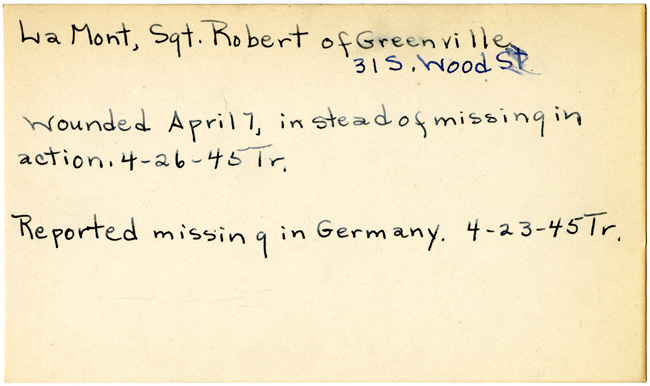 La Mont, Sgt. Robert of Greenville
31 S. Wood St.
Wounded April 7, instead of missing in
action. 4-26-45 Tr.
Reported missing in Germany. 4-23-45 Tr.